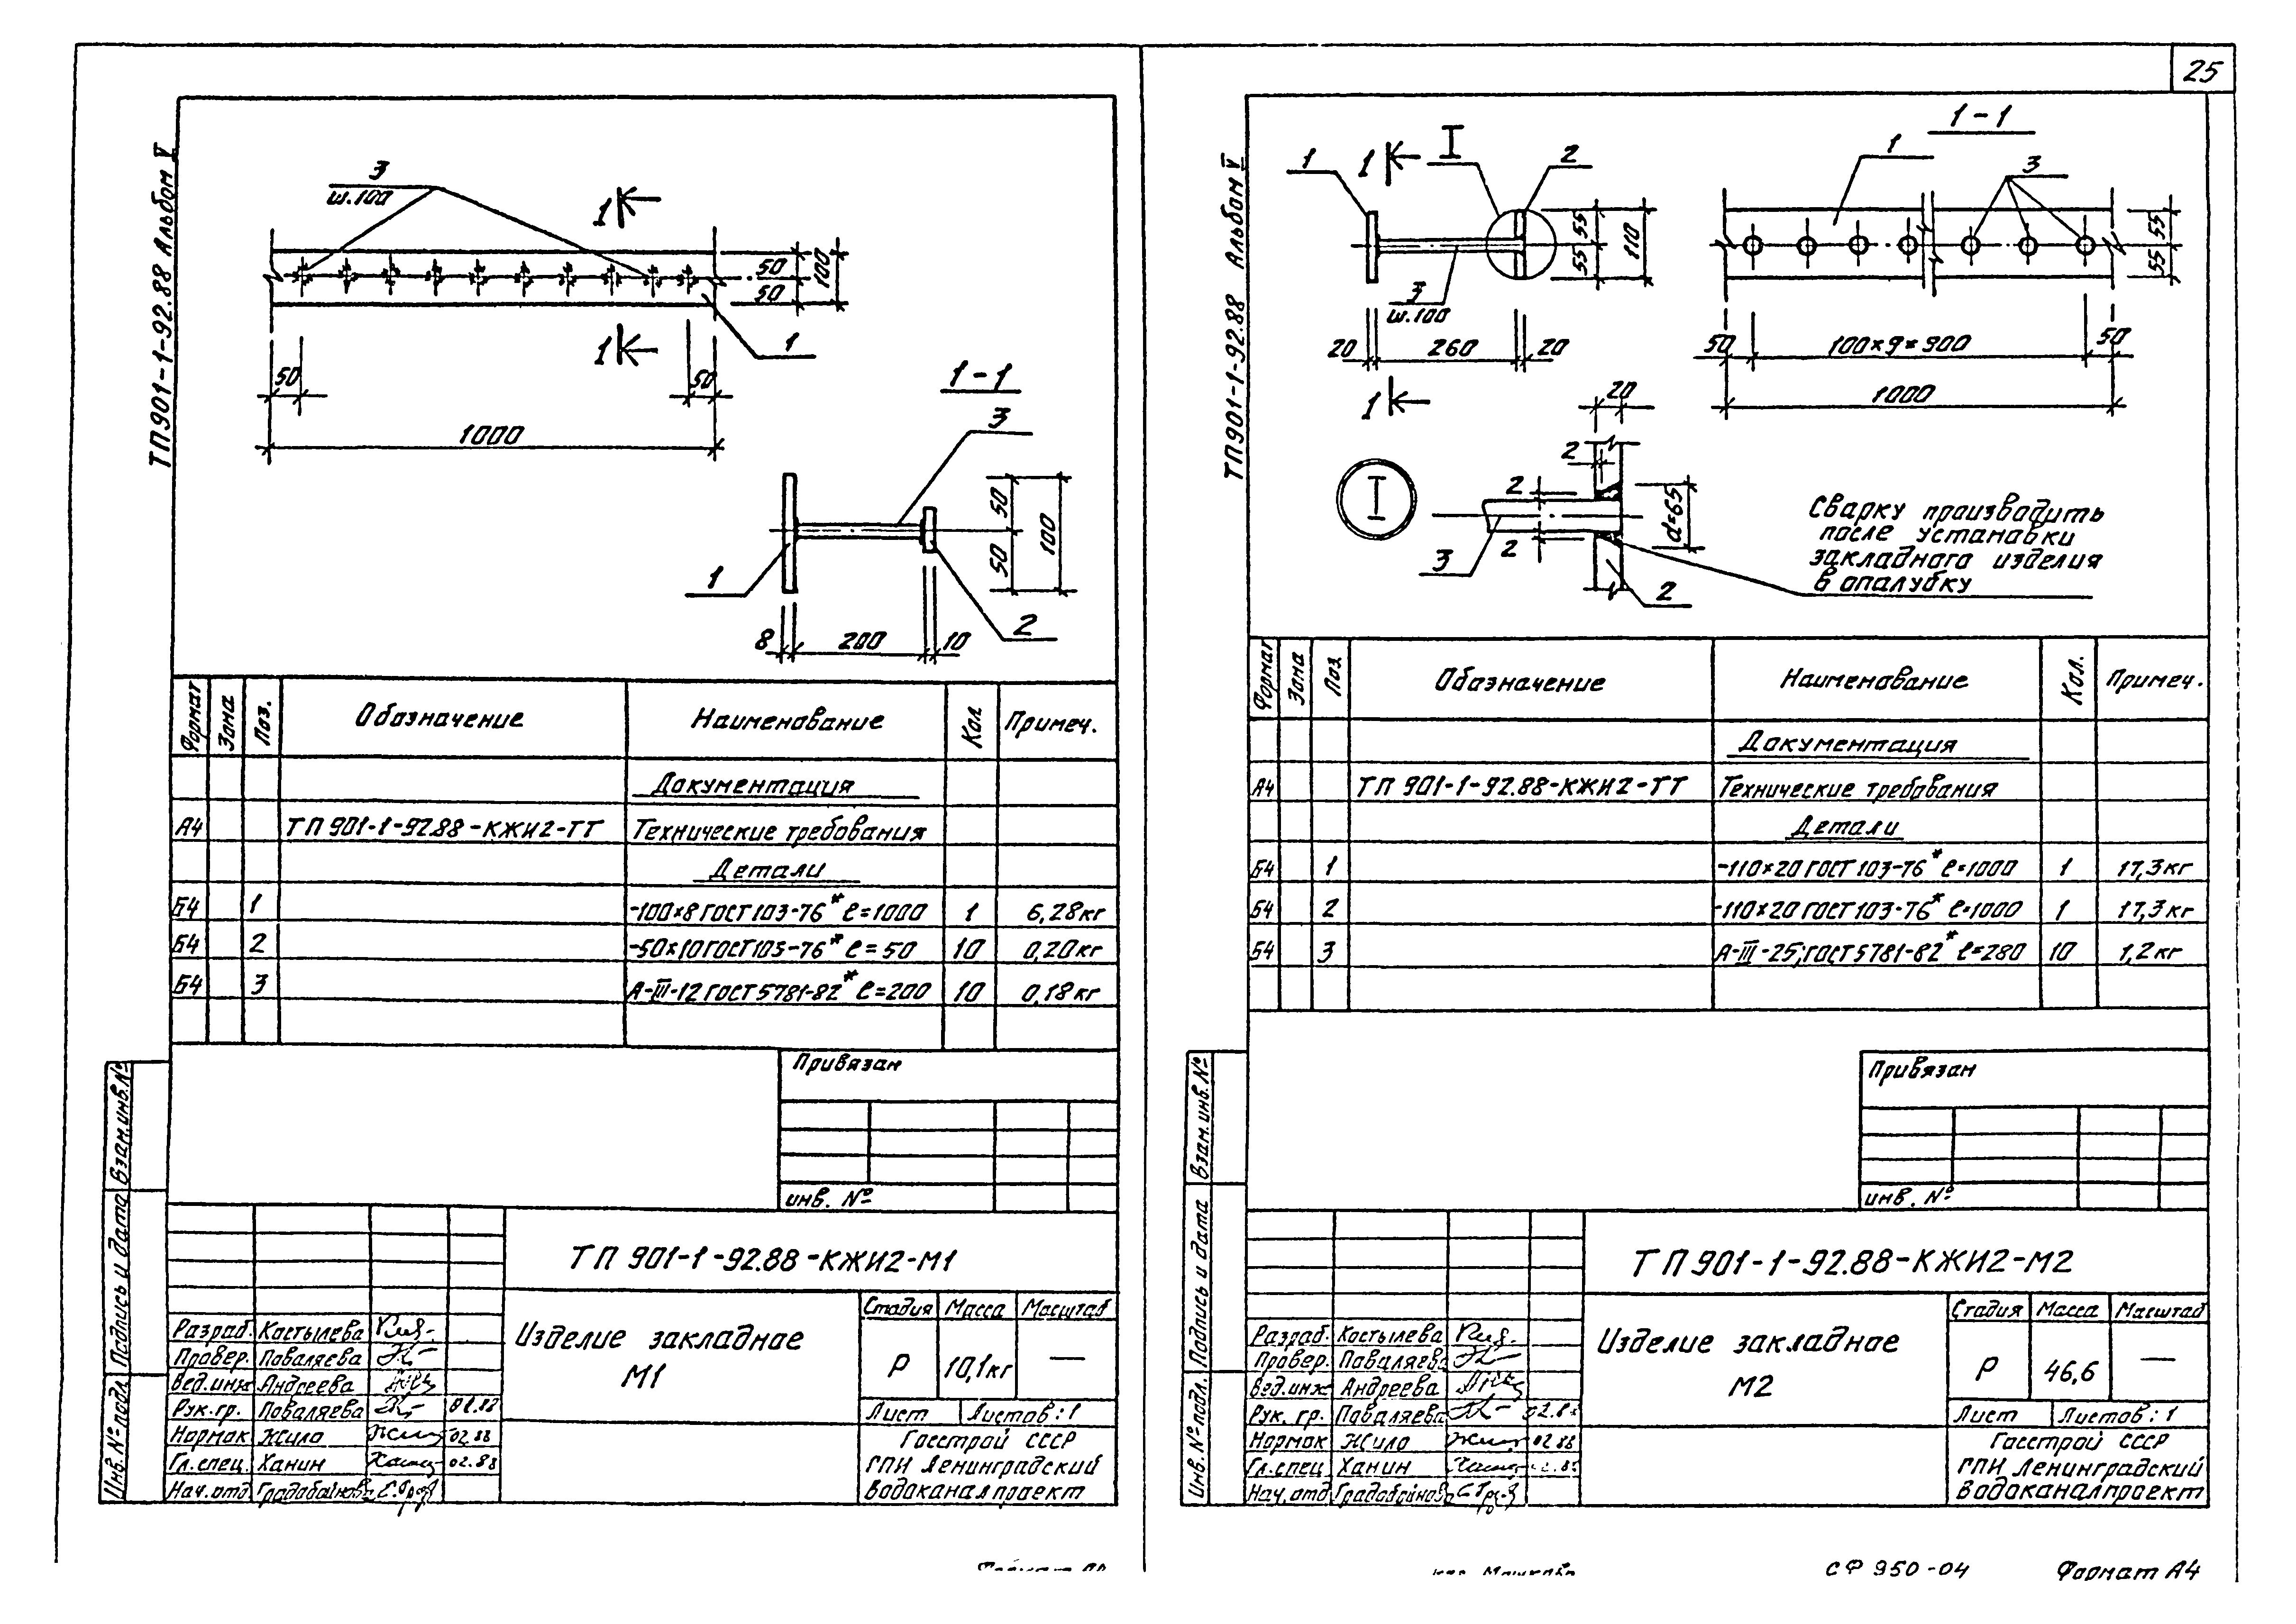 25
ТП901-1-92.88 Альбом V
3
ш.100
1
1
1
50
50
100
50
50
1000
1-1
3
1
2
50
50
100
8
200
10
Формат
Зона
Поз.
Обозначение
Наименование
Кол
Примеч.
Документация
А4 ТП 901-1-92.88-КЖИ2-ТТ Технические требования
Детали
Б4 1 -100×8 ГОСТ 103-76* ℓ=1000 1 6,28кг
Б4 2 -50×10 ГОСТ 103-76* ℓ=50 10 0,20кг
Б4 3 А-III-12 ГОСТ 5781-82* ℓ=200 10 0,18кг
Привязан
инв. №
Взам.инв.№
Подпись и дата
Инв.№ подл.
ТП 901-1-92.88-КЖИ2-М1
Изделие закладное
М1
Стадия Масса Масштаб
Р 10,1кг —
Лист Листов:1
Госстрой СССР
ГПИ Ленинградский
Водоканалпроект
Разраб. Костылева
Провер. Поваляева
Вед.инж Андреева
Рук.гр. Поваляева
Нормок Жило 02.88
Гл.спец. Ханин 02.88
Нач.отд Градобойнова
ТП901-1-92.88 Альбом V
1
1
I
2
3
ш.100
55
55
110
20
260
20
1
1-1
1
3
55
55
50
100×9=900
50
1000
I
20
2
2
2
d=65
3
2
Сварку производить
после установки
закладного изделия
в опалубку
Формат
Зона
Поз.
Обозначение
Наименование
Кол.
Примеч.
Документация
А4 ТП 901-1-92.88-КЖИ2-ТТ Технические требования
Детали
Б4 1 -110×20 ГОСТ 103-76* ℓ=1000 1 17,3кг
Б4 2 -110×20 ГОСТ 103-76* ℓ=1000 1 17,3кг
Б4 3 А-III-25; ГОСТ 5781-82* ℓ=280 10 1,2кг
Привязан
инв. №
Взам.инв.№
Подпись и дата
Инв.№ подл.
ТП 901-1-92.88-КЖИ2-М2
Изделие закладное
М2
Стадия Масса Масштаб
Р 46,6 —
Лист Листов:1
Госстрой СССР
ГПИ Ленинградский
Водоканалпроект
Разраб. Костылева
Провер. Поваляева
Вед.инж Андреева
Рук. гр. Поваляева
Нормок Жило 02.88
Гл.спец Ханин
Нач.отд Градобойнова
СФ 950-04
Формат А4